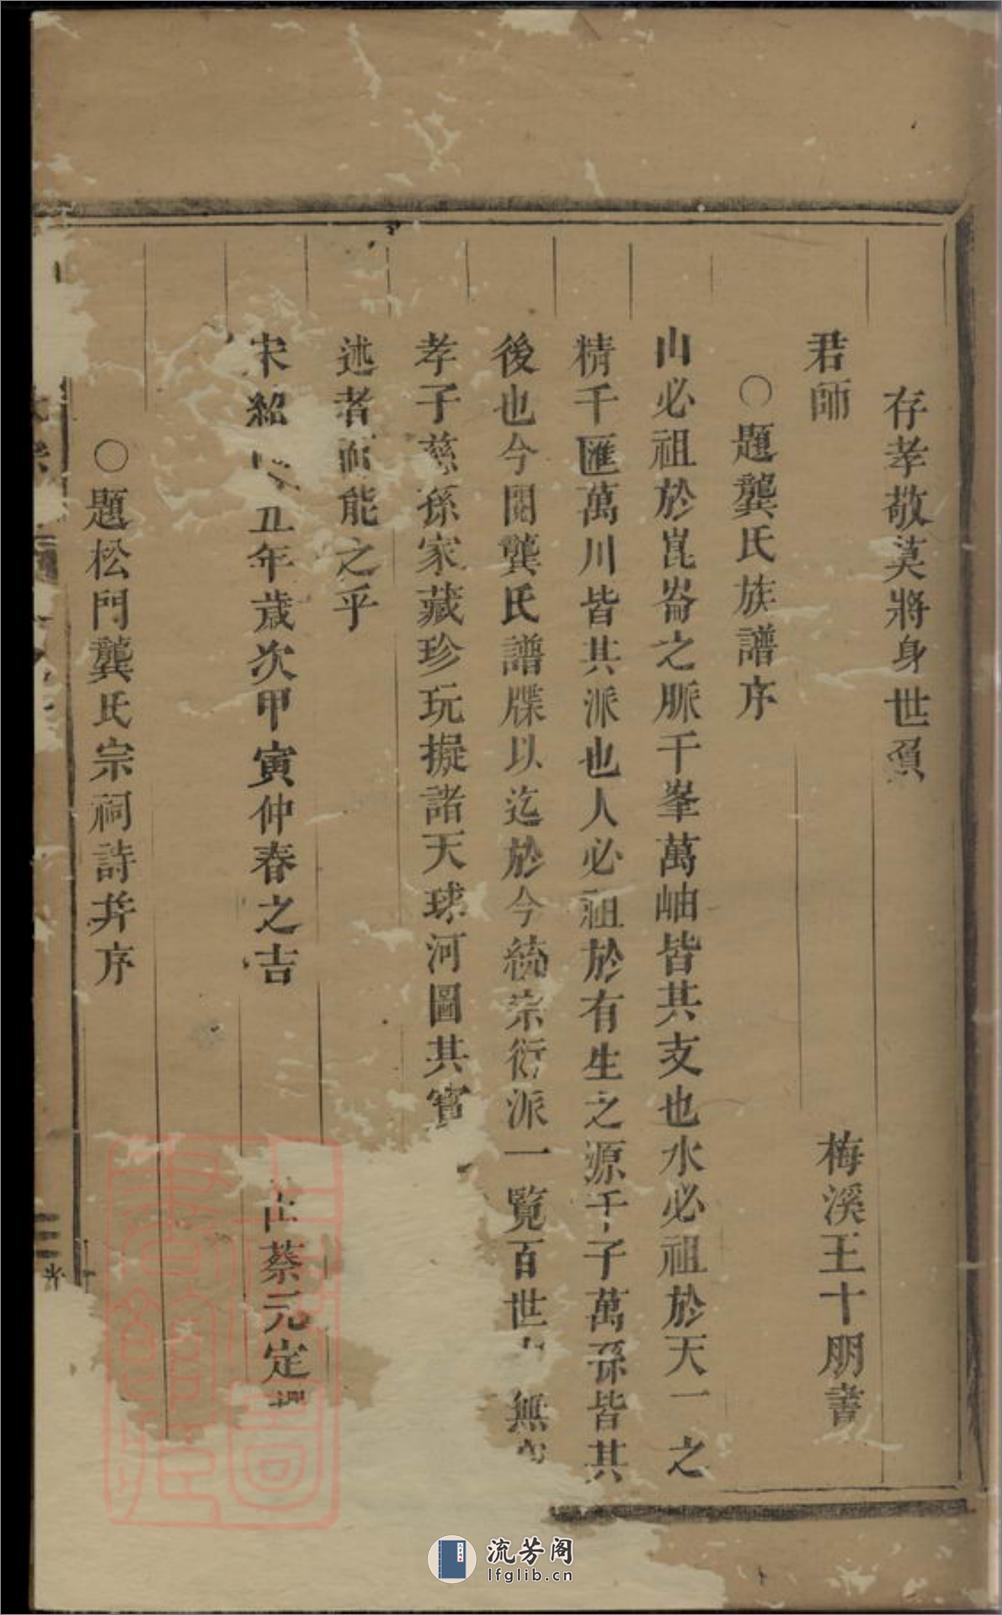 存孝敬莫將身世負
君師
梅溪王十朋書
○題龔氏族譜序
山必祖於崑崙之脈千峯萬岫皆其支也水必祖於天一之
精千匯萬川皆其派也人必祖於有生之源千子萬孫皆其
後也今閱龔氏譜牒以迄於今統宗衍派一覽百世無
孝子慈孫家藏珍玩擬諸天球河圖其寶
述者而能之乎
宋紹丑年歲次甲寅仲春之吉
蔡元定
○題松門龔氏宗祠詩并序
流芳阁
lfglib.cn